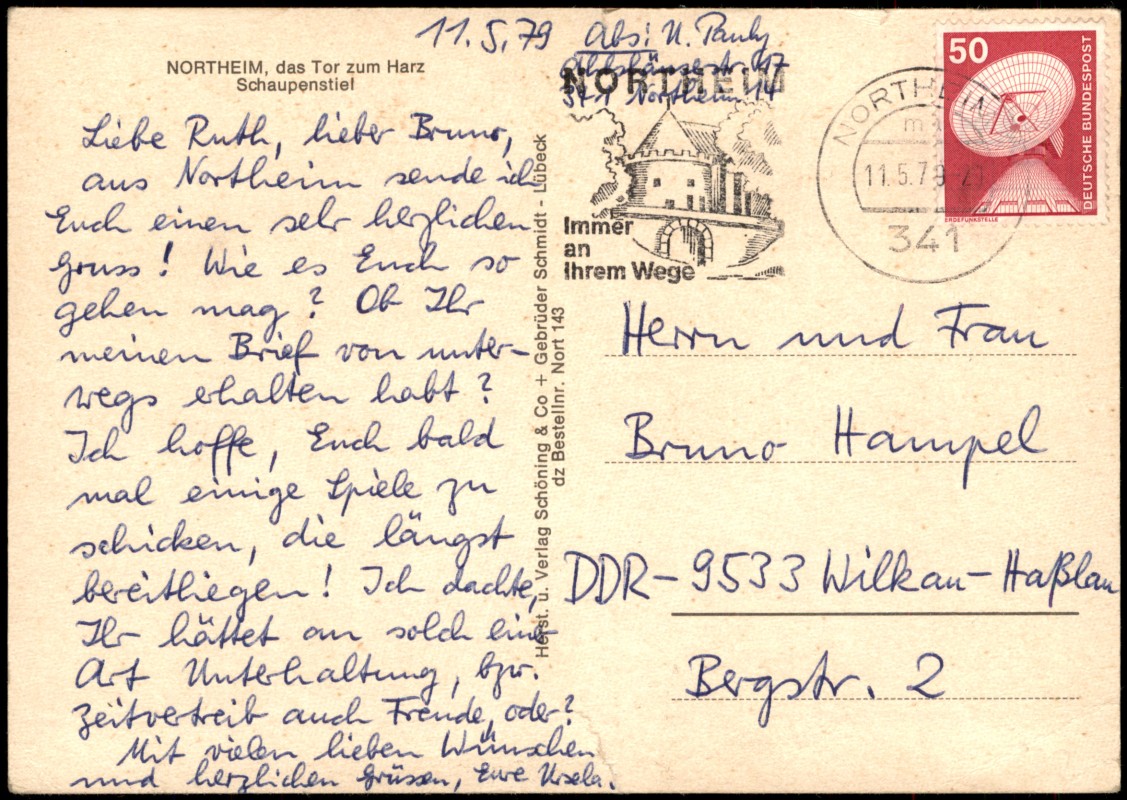 11.5.79
Abs: U. Pauly
341 Northeim 14
NORTHEIM, das Tor zum Harz
Schaupenstiel
Liebe Ruth, lieber Bruno,
aus Northeim sende ich
Euch einen sehr herzlichen
Gruss! Wie es Euch so
gehen mag? Ob Ihr
meinen Brief von unter-
wegs erhalten habt?
Ich hoffe, Euch bald
mal einige Spiele zu
schicken, die längst
bereitliegen! Ich dachte,
Ihr hättet an solch eine
Art Unterhaltung, bzw.
Zeitvertreib auch Freude, oder?
Mit vielen lieben Wünschen
und herzlichen Grüssen, Eure Ursela.
Horst. u. Verlag Schöning & Co + Gebrüder Schmidt - Lübeck
dz Bestellnr. Nort 143
NORTHEIM
Immer
an
Ihrem Wege
NORTHEIM
11.5.79-21
341
50
DEUTSCHE BUNDESPOST
ERDEFUNKSTELLE
Herrn und Frau
Bruno Hampel
DDR-9533 Wilkau-Haßlau
Bergstr. 2